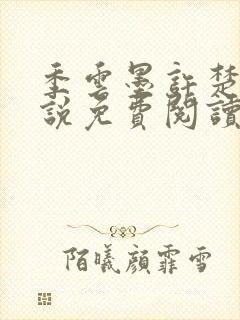 季雲墨許楚
說免費閱讀
陌曦顏霏雪